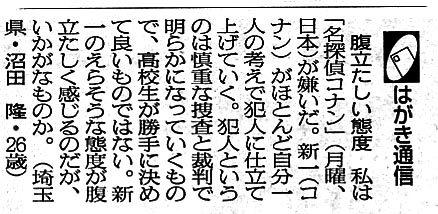 はがき通信
腹立たしい態度　私は
「名探偵コナン」（月曜、
日本）が嫌いだ。新一（コ
ナン）がほとんど自分一
人の考えで犯人に仕立て
上げていく。犯人という
のは慎重な捜査と裁判で
明らかになっていくもの
で、高校生が勝手に決め
て良いものではない。新
一のえらそうな態度が腹
立たしく感じるのだが、
いかがなものか。（埼玉
県・沼田　隆・26歳）